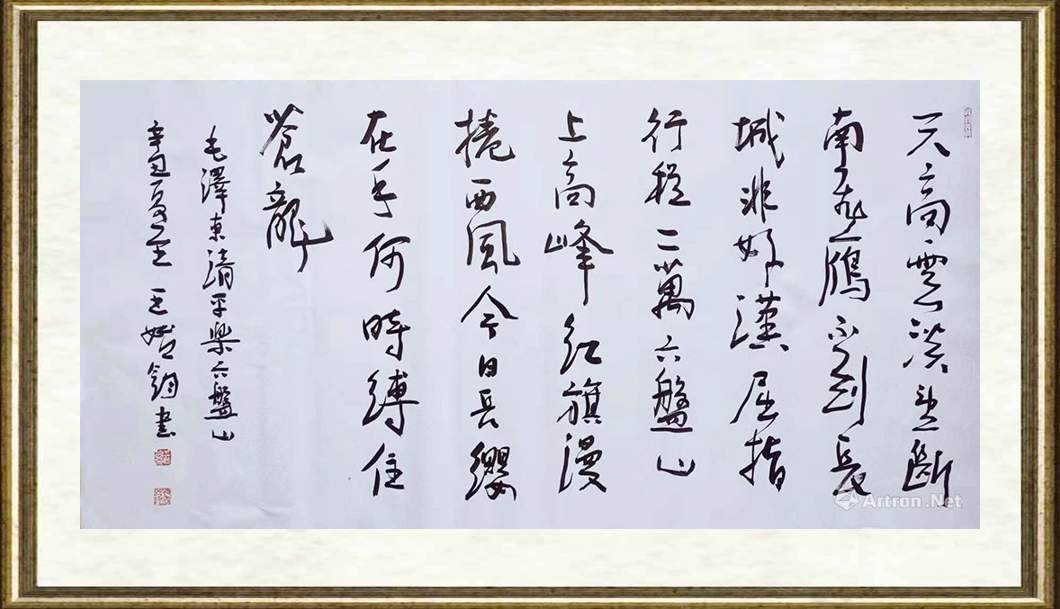 天高雲淡望斷
南飛雁不到長
城非好漢屈指
行程二萬六盤山
上高峰紅旗漫
捲西風今日長纓
在手何時縛住
蒼龍
毛澤東清平樂六盤山
辛丑夏至 王 書
Artron.Net